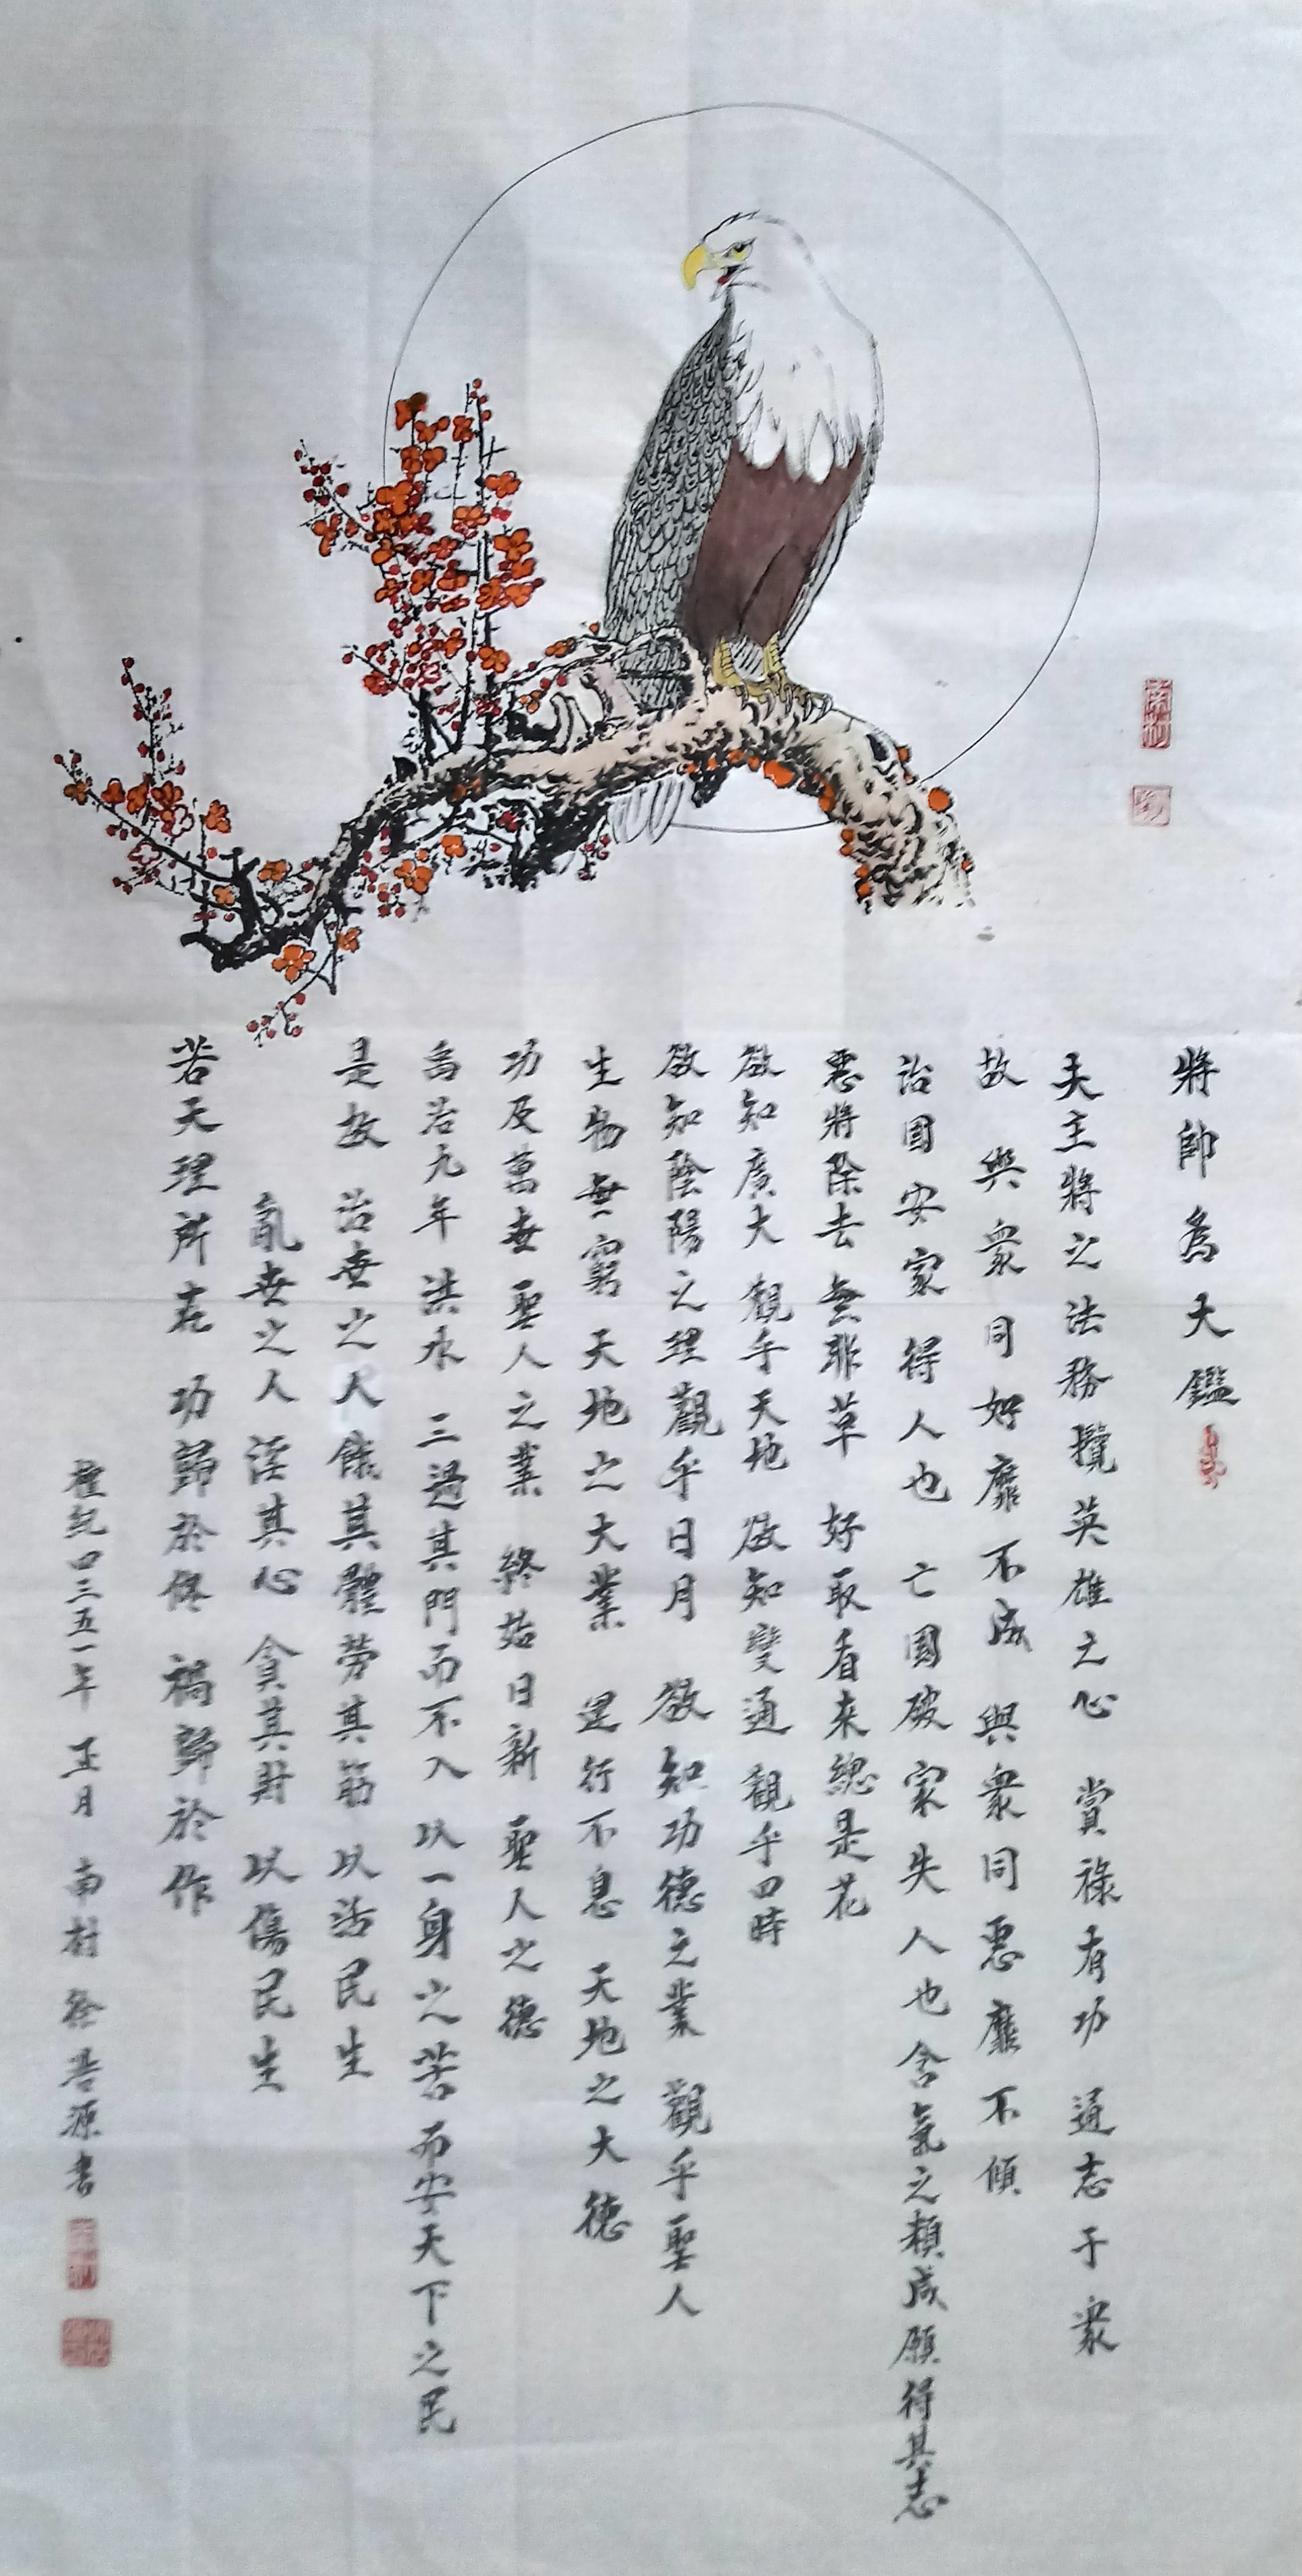 將帥為大鑑
夫主將之法務攬英雄之心 賞祿有功 通志于衆
故 與衆同好靡不成 與衆同惡靡不傾
治國安家 得人也 亡國破家失人也含氣之類咸願得其志
惡將除去無非草 好取看來總是花
啟知廣大 觀乎天地 啟知變通 觀乎四時
啟知陰陽之理觀乎日月 啟知功德之業 觀乎聖人
生物無窮 天地之大業 運行不息 天地之大德
功及萬世 聖人之業 終始日新 聖人之德
禹治九年 洪水 三過其門而不入 以一身之苦而安天下之民
是故 治世之人 餓其體勞其筋 以活民生
亂世之人 淫其心 貪其財 以傷民生
若天理所在 功歸於修 禍歸於作
檀紀四三五一年 正月 南村 徐 源書
南村